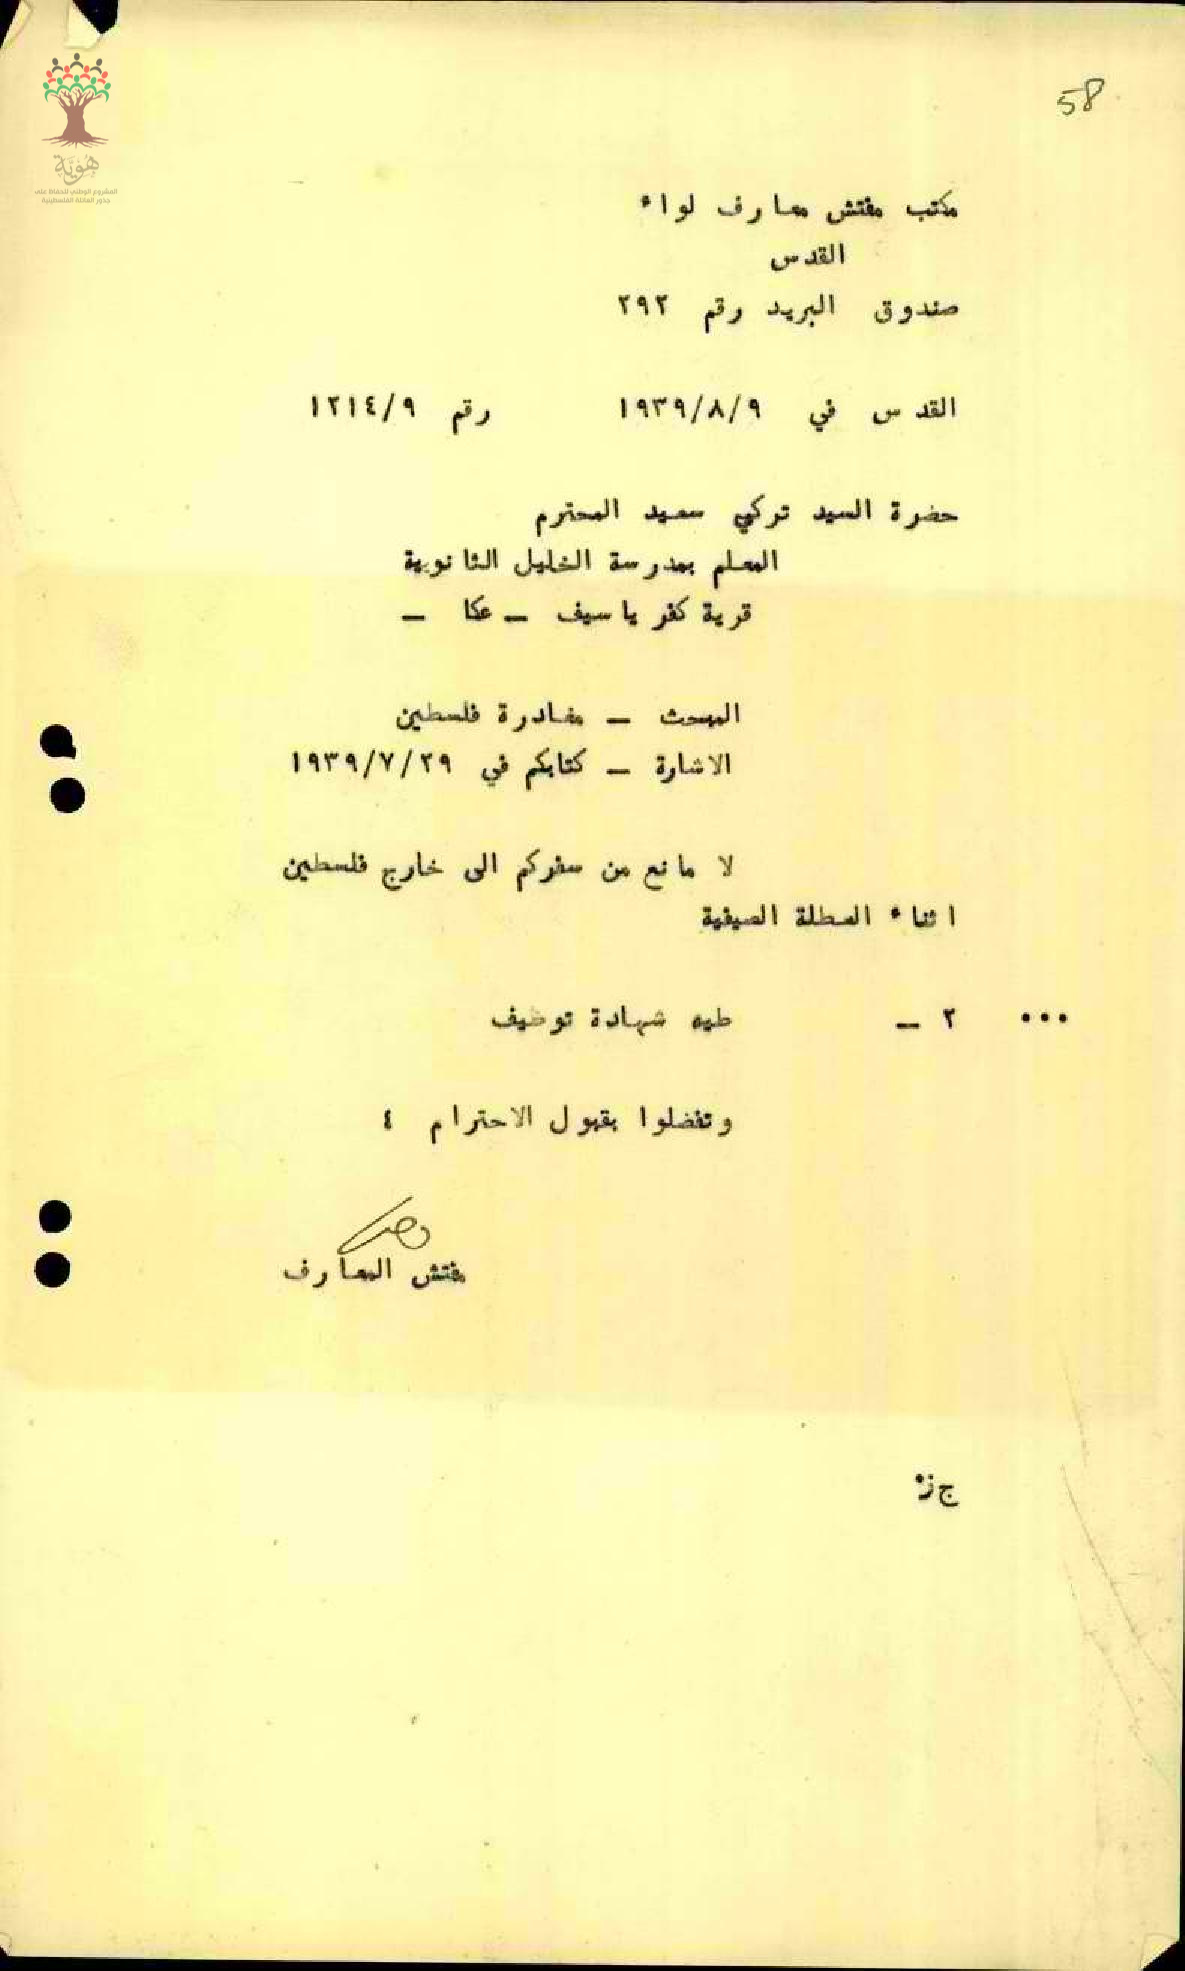 58
هوية
المشروع الوطني للحفاظ على
جذور العائلة الفلسطينية
مكتب مفتش معارف لواء
القدس
صندوق البريد رقم ٢٩٢
القدس في ١٩٣٩/٨/٩ رقم ١٢١٤/٩
حضرة السيد تركي سعيد المحترم
المعلم بمدرسة الخليل الثانوية
قرية كفر ياسيف – عكا –
المبحث – مغادرة فلسطين
الاشارة – كتابكم في ١٩٣٩/٧/٢٩
لا مانع من سفركم الى خارج فلسطين
اثناء العطلة الصيفية
... ٢ – طيه شهادة توظيف
وتفضلوا بقبول الاحترام ٤
مفتش المعارف
ج ز